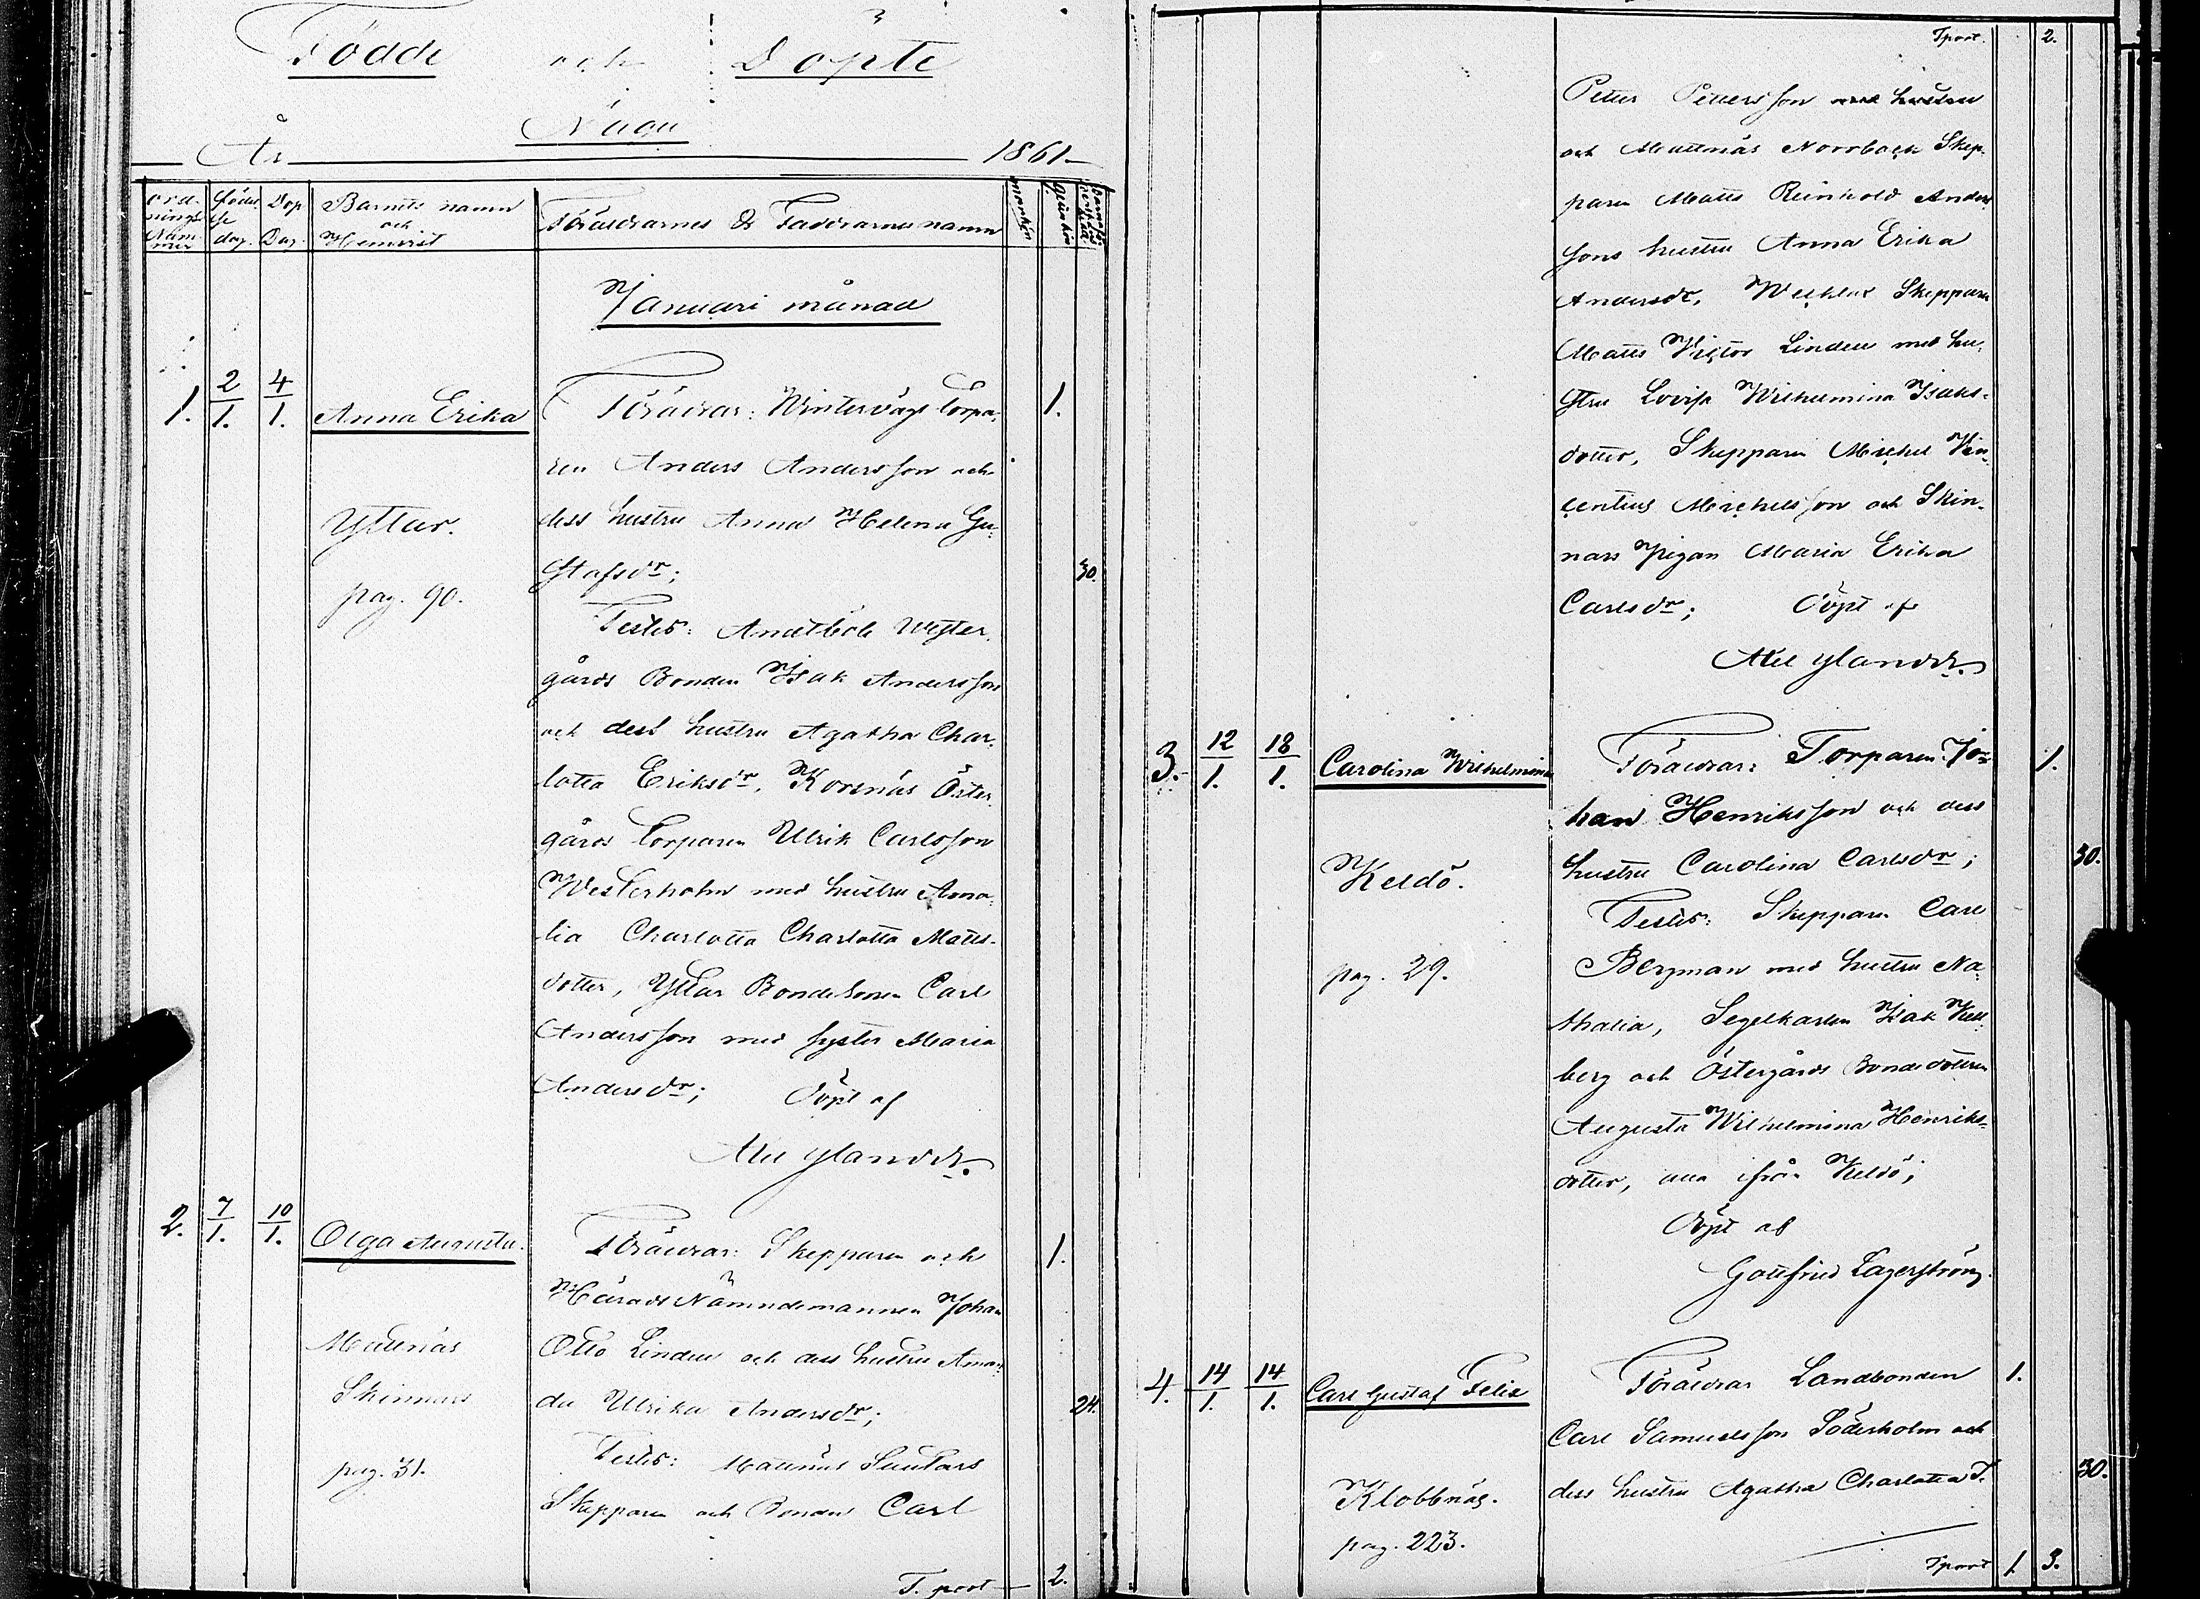 Födde och Döpte
Nagu
År 1861
ord-
nings
Num-
mer
Födel-
se
dag.
Dop
Dag.
Barnets namn
och
Hemvist
Föräldrarnes & Faddrarnes namn
mankön
qvinkön
Januari månad
1. 2/1. 4/1.
Anna Erika
Yttar.
pag. 90.
Föräldrar: Wintervägs Torpa-
ren Anders Andersson och
dess hustru Anna Helena Gu-
stafsdr;
Testes: Andtböle Wester-
gårds Bonden Isak Andersson
och dess hustru Agatha Char-
lotta Eriksdr, Korsnäs Öster-
gårds Torparen Ulrik Carlsson
Westerholm med hustru Ama-
lia Charlotta Charlotta Matts-
dotter, Yttar Bondesonen Carl
Andersson med syster Maria
Andersdr; Döpt af
Ylander.
1.
30.
2. 7/1. 10/1.
Olga Augusta.
Mattnäs
Skinnars
pag. 31.
Föräldrar: Skepparen och
Härads Nämndemannen Johan
Otto Linden och dess hustru Aman-
da Ulrika Andersdr;
Testes: Mattnäs
Skepparen och Bonden Carl
1.
24.
T. port 2.
Tport. 2.
Petter Pettersson med hustru
och Mattnäs Norrback Skep-
paren Matts Reinhold Anders-
sons hustru Anna Erika
Andersdr, Skepparen
Matts Victor Linden med hu-
stru Lovisa Wilhelmina Isaks-
dotter, Skepparen Michel Vin-
centius Michelsson och Skin-
nars Pigan Maria Erika
Carlsdr; Döpt af
Ylander.
3. 12/1. 18/1.
Carolina Wilhelmina
Keldö.
pag. 29.
Föräldrar: Torparen Jo-
han Henriksson och dess
hustru Carolina Carlsdr;
Testes: Skepparen Carl
Bergman med hustru Na-
thalia, Segelkarlen Isak Kell-
berg och Östergårds Bondedottren
Augusta Wilhelmina Henriks-
dotter, alla ifrån Keldö;
Döpt af
Gottfried Lagerström.
1.
30.
4. 14/1. 14/1.
Carl Gustaf Felix
Klobbnäs.
pag. 223.
Föräldrar Landbonden
Carl Samuelsson Söderholm och
dess hustru Agatha Charlotta T.
1.
30.
Tport 1. 3.